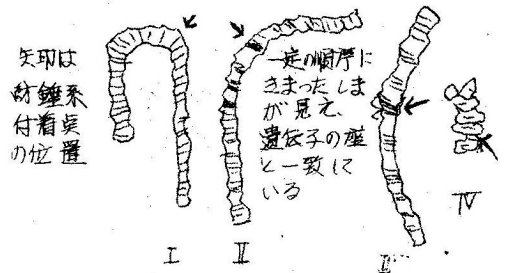 矢印は
紡錘糸
付着点
の位置
一定の順序に
きまったしま
が見え、
遺伝子の座
と一致して
いる
I
II
IV